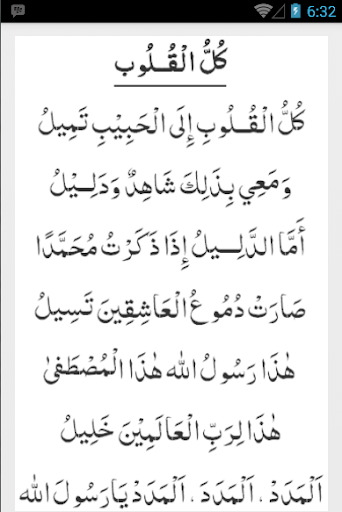 6:32
كُلُّ الْقُـلُوب
كُلُّ الْقُـلُوبِ إِلَى الْحَبِيْبِ تَمِيلُ
وَمَعِي بِذَلِكَ شَاهِدٌ وَدَلِـيْلُ
أَمَّا الدَّلِـيلُ إِذَا ذَكَرْتُ مُحَمَّدًا
صَارَتْ دُمُوعُ الْعَاشِقِينَ تَسِيلُ
هٰذَا رَسُولُ الله هٰذَا الْمُصْطَفىٰ
هٰذَا لِرَبِّ الْعَالَمِيْنَ خَلِيلُ
اَلْمَدَدْ ، اَلْمَدَدَ ، اَلْمَدَدْ يَا رَسُولَ الله